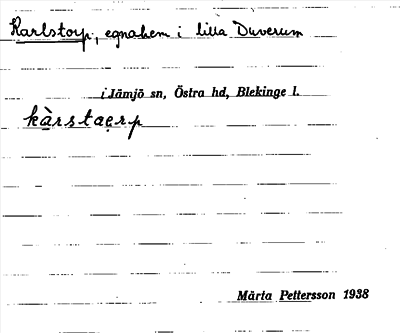 Karlstorp, egnahem i lilla Duverum
i Jämjö sn, Östra hd, Blekinge l.
kàrstaẹrp
Märta Pettersson 1938